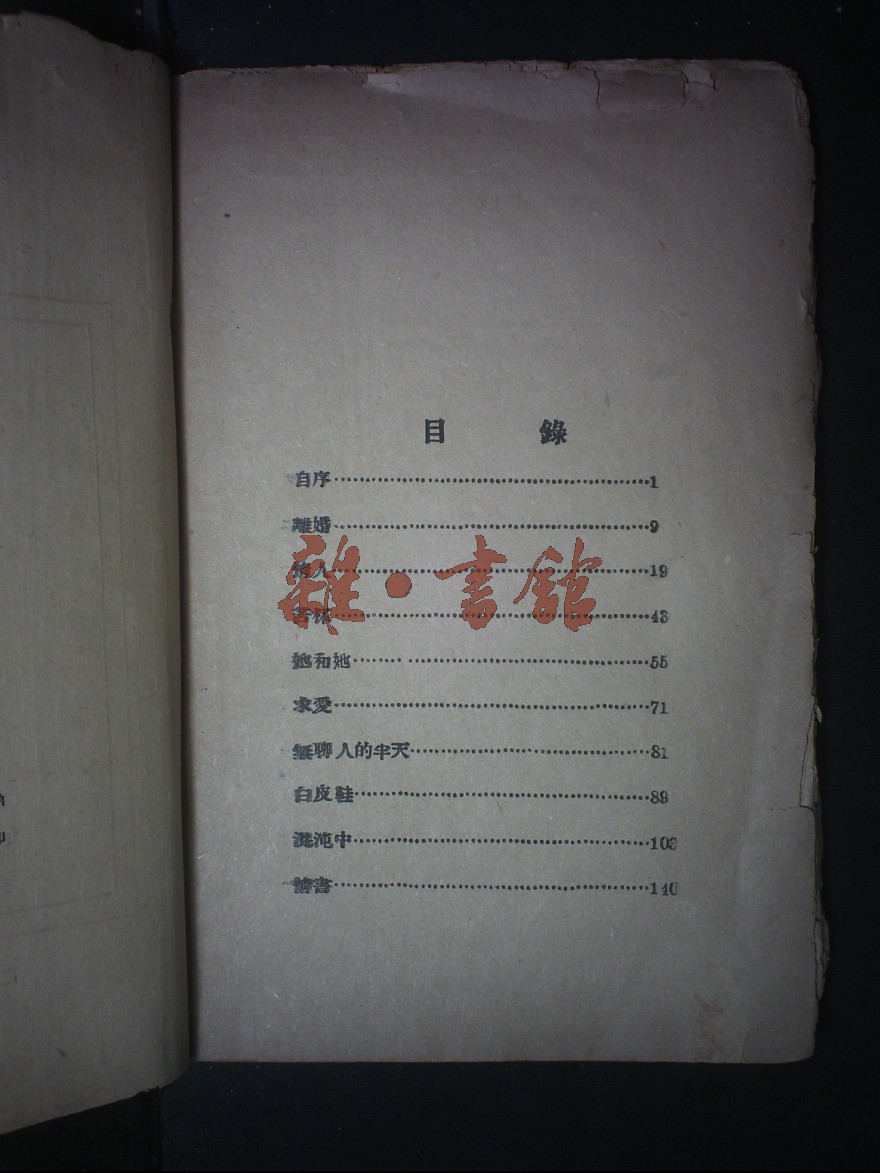 目錄
自序……1
離婚……9
人……19
苦杯……43
她和她……55
求愛……71
無聊人的半天……81
白皮鞋……89
混沌中……103
情書……140
雜·書館